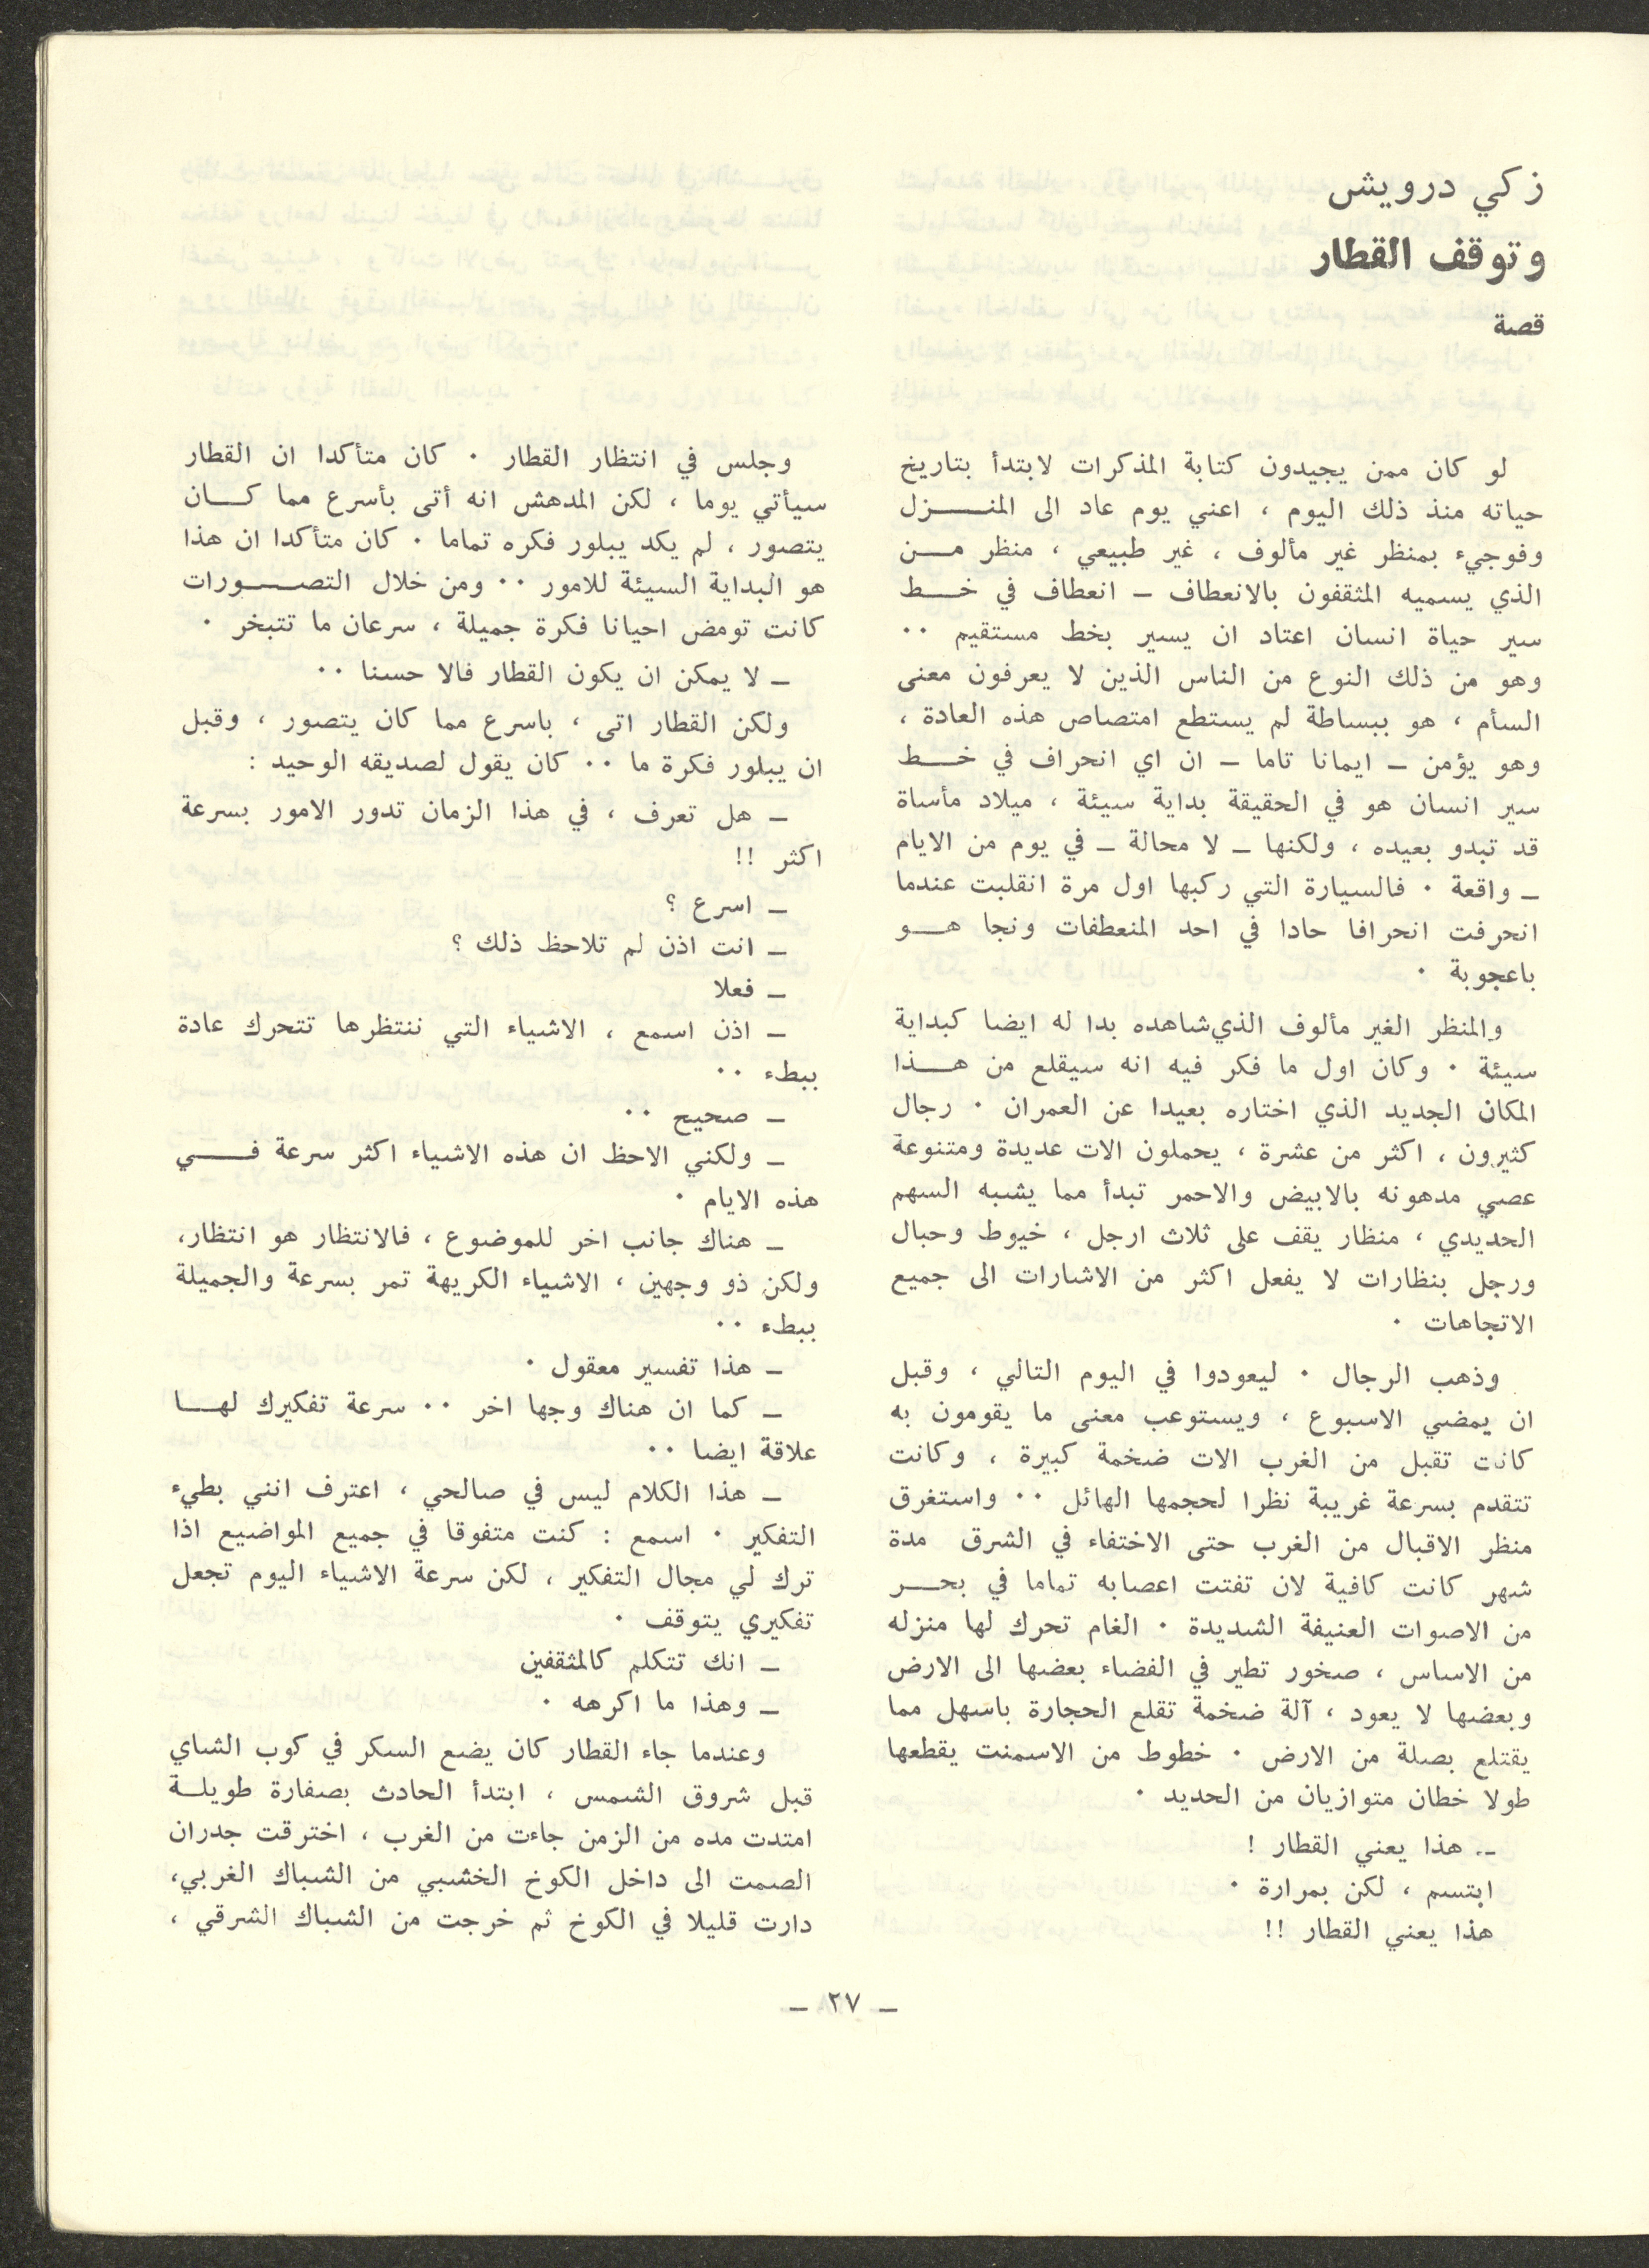 زكي درويش
وتوقف القطار
قصة
لو كان ممن يجيدون كتابة المذكرات لابتدأ بتاريخ
حياته منذ ذلك اليوم ، اعني يوم عاد الى المنزل
وفوجيء بمنظر غير مألوف ، غير طبيعي ، منظر من
الذي يسميه المثقفون بالانعطاف – انعطاف في خط
سير حياة انسان اعتاد ان يسير بخط مستقيم ٠٠
وهو من ذلك النوع من الناس الذين لا يعرفون معنى
السأم ، هو ببساطة لم يستطع امتصاص هذه العادة ،
وهو يؤمن – ايمانا تاما – ان اي انحراف في خط
سير انسان هو في الحقيقة بداية سيئة ، ميلاد مأساة
قد تبدو بعيده ، ولكنها – لا محالة – في يوم من الايام
– واقعة ٠ فالسيارة التي ركبها اول مرة انقلبت عندما
انحرفت انحرافا حادا في احد المنعطفات ونجا هو
باعجوبة ٠
والمنظر الغير مألوف الذي شاهده بدا له ايضا كبداية
سيئة ٠ وكان اول ما فكر فيه انه سيقلع من هذا
المكان الجديد الذي اختاره بعيدا عن العمران ٠ رجال
كثيرون ، اكثر من عشرة ، يحملون الات عديدة ومتنوعة
عصي مدهونه بالابيض والاحمر تبدأ مما يشبه السهم
الحديدي ، منظار يقف على ثلاث ارجل ، خيوط وحبال
ورجل بنظارات لا يفعل اكثر من الاشارات الى جميع
الاتجاهات ٠
وذهب الرجال ٠ ليعودوا في اليوم التالي ، وقبل
ان يمضي الاسبوع ، ويستوعب معنى ما يقومون به
كانت تقبل من الغرب الات ضخمة كبيرة ، وكانت
تتقدم بسرعة غريبة نظرا لحجمها الهائل ٠٠ واستغرق
منظر الاقبال من الغرب حتى الاختفاء في الشرق مدة
شهر كانت كافية لان تفتت اعصابه تماما في بحر
من الاصوات العنيفة الشديدة ٠ الغام تحرك لها منزله
من الاساس ، صخور تطير في الفضاء بعضها الى الارض
وبعضها لا يعود ، آلة ضخمة تقلع الحجارة باسهل مما
يقتلع بصلة من الارض ٠ خطوط من الاسمنت يقطعها
طولا خطان متوازيان من الحديد ٠
–. هذا يعني القطار !
ابتسم ، لكن بمرارة ٠
هذا يعني القطار !!
وجلس في انتظار القطار ٠ كان متأكدا ان القطار
سيأتي يوما ، لكن المدهش انه أتى بأسرع مما كان
يتصور ، لم يكد يبلور فكره تماما ٠ كان متأكدا ان هذا
هو البداية السيئة للامور ٠٠ ومن خلال التصورات
كانت تومض احيانا فكرة جميلة ، سرعان ما تتبخر ٠
– لا يمكن ان يكون القطار فالا حسنا ٠٠
ولكن القطار اتى ، باسرع مما كان يتصور ، وقبل
ان يبلور فكرة ما ٠٠ كان يقول لصديقه الوحيد :
– هل تعرف ، في هذا الزمان تدور الامور بسرعة
اكثر !!
– اسرع ؟
– انت اذن لم تلاحظ ذلك ؟
– فعلا
– اذن اسمع ، الاشياء التي ننتظرها تتحرك عادة
ببطء ٠٠
– صحيح ٠٠
– ولكني الاحظ ان هذه الاشياء اكثر سرعة في
هذه الايام ٠
– هناك جانب اخر للموضوع ، فالانتظار هو انتظار،
ولكن ذو وجهين ، الاشياء الكريهة تمر بسرعة والجميلة
ببطء ٠٠
– هذا تفسير معقول ٠
– كما ان هناك وجها اخر ٠٠ سرعة تفكيرك لها
علاقة ايضا ٠٠
– هذا الكلام ليس في صالحي ، اعترف انني بطيء
التفكير ٠ اسمع : كنت متفوقا في جميع المواضيع اذا
ترك لي مجال التفكير ، لكن سرعة الاشياء اليوم تجعل
تفكيري يتوقف ٠
– انك تتكلم كالمثقفين
– وهذا ما اكرهه ٠
وعندما جاء القطار كان يضع السكر في كوب الشاي
قبل شروق الشمس ، ابتدأ الحادث بصفارة طويلة
امتدت مده من الزمن جاءت من الغرب ، اخترقت جدران
الصمت الى داخل الكوخ الخشبي من الشباك الغربي،
دارت قليلا في الكوخ ثم خرجت من الشباك الشرقي ،
– ٢٧ –